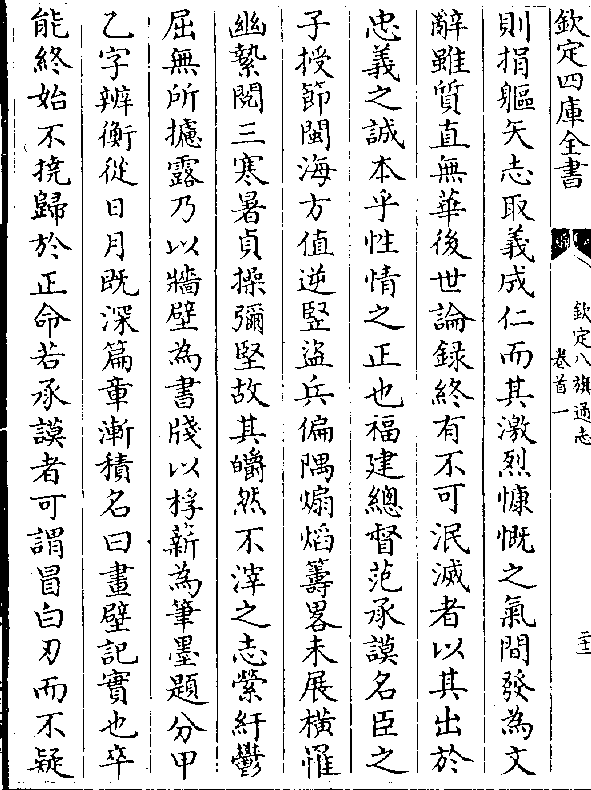 欽定四庫全書
欽定八旗通志
卷首一
二十二
則捐軀矢志取義成仁而其激烈慷慨之氣間發為文
辭雖質直無華後世論録終有不可泯滅者以其出於
忠義之誠本乎性情之正也福建總督范承謨名臣之
子授節閩海方值逆豎盜兵偏隅煽熖籌畧未展橫罹
幽縶閱三寒暑貞操彌堅故其皭然不滓之志縈紆鬱
屈無所攄露乃以牆壁為書牋以桴薪為筆墨題分甲
乙字辨衡從日月既深篇章漸積名曰畫壁記實也卒
能終始不撓歸於正命若承謨者可謂冒白刃而不疑